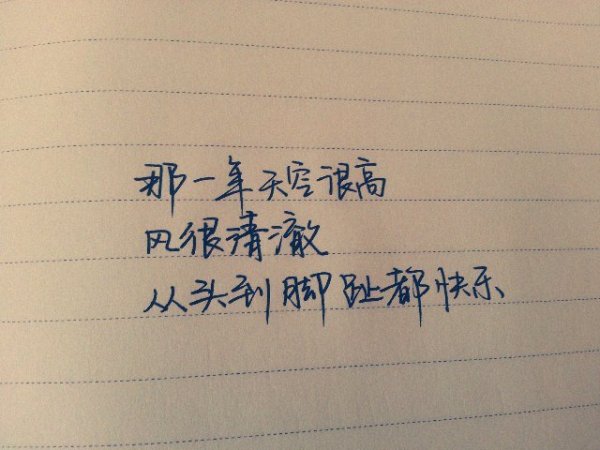 那一年天空很高
风很清澈
从头到脚趾都快乐